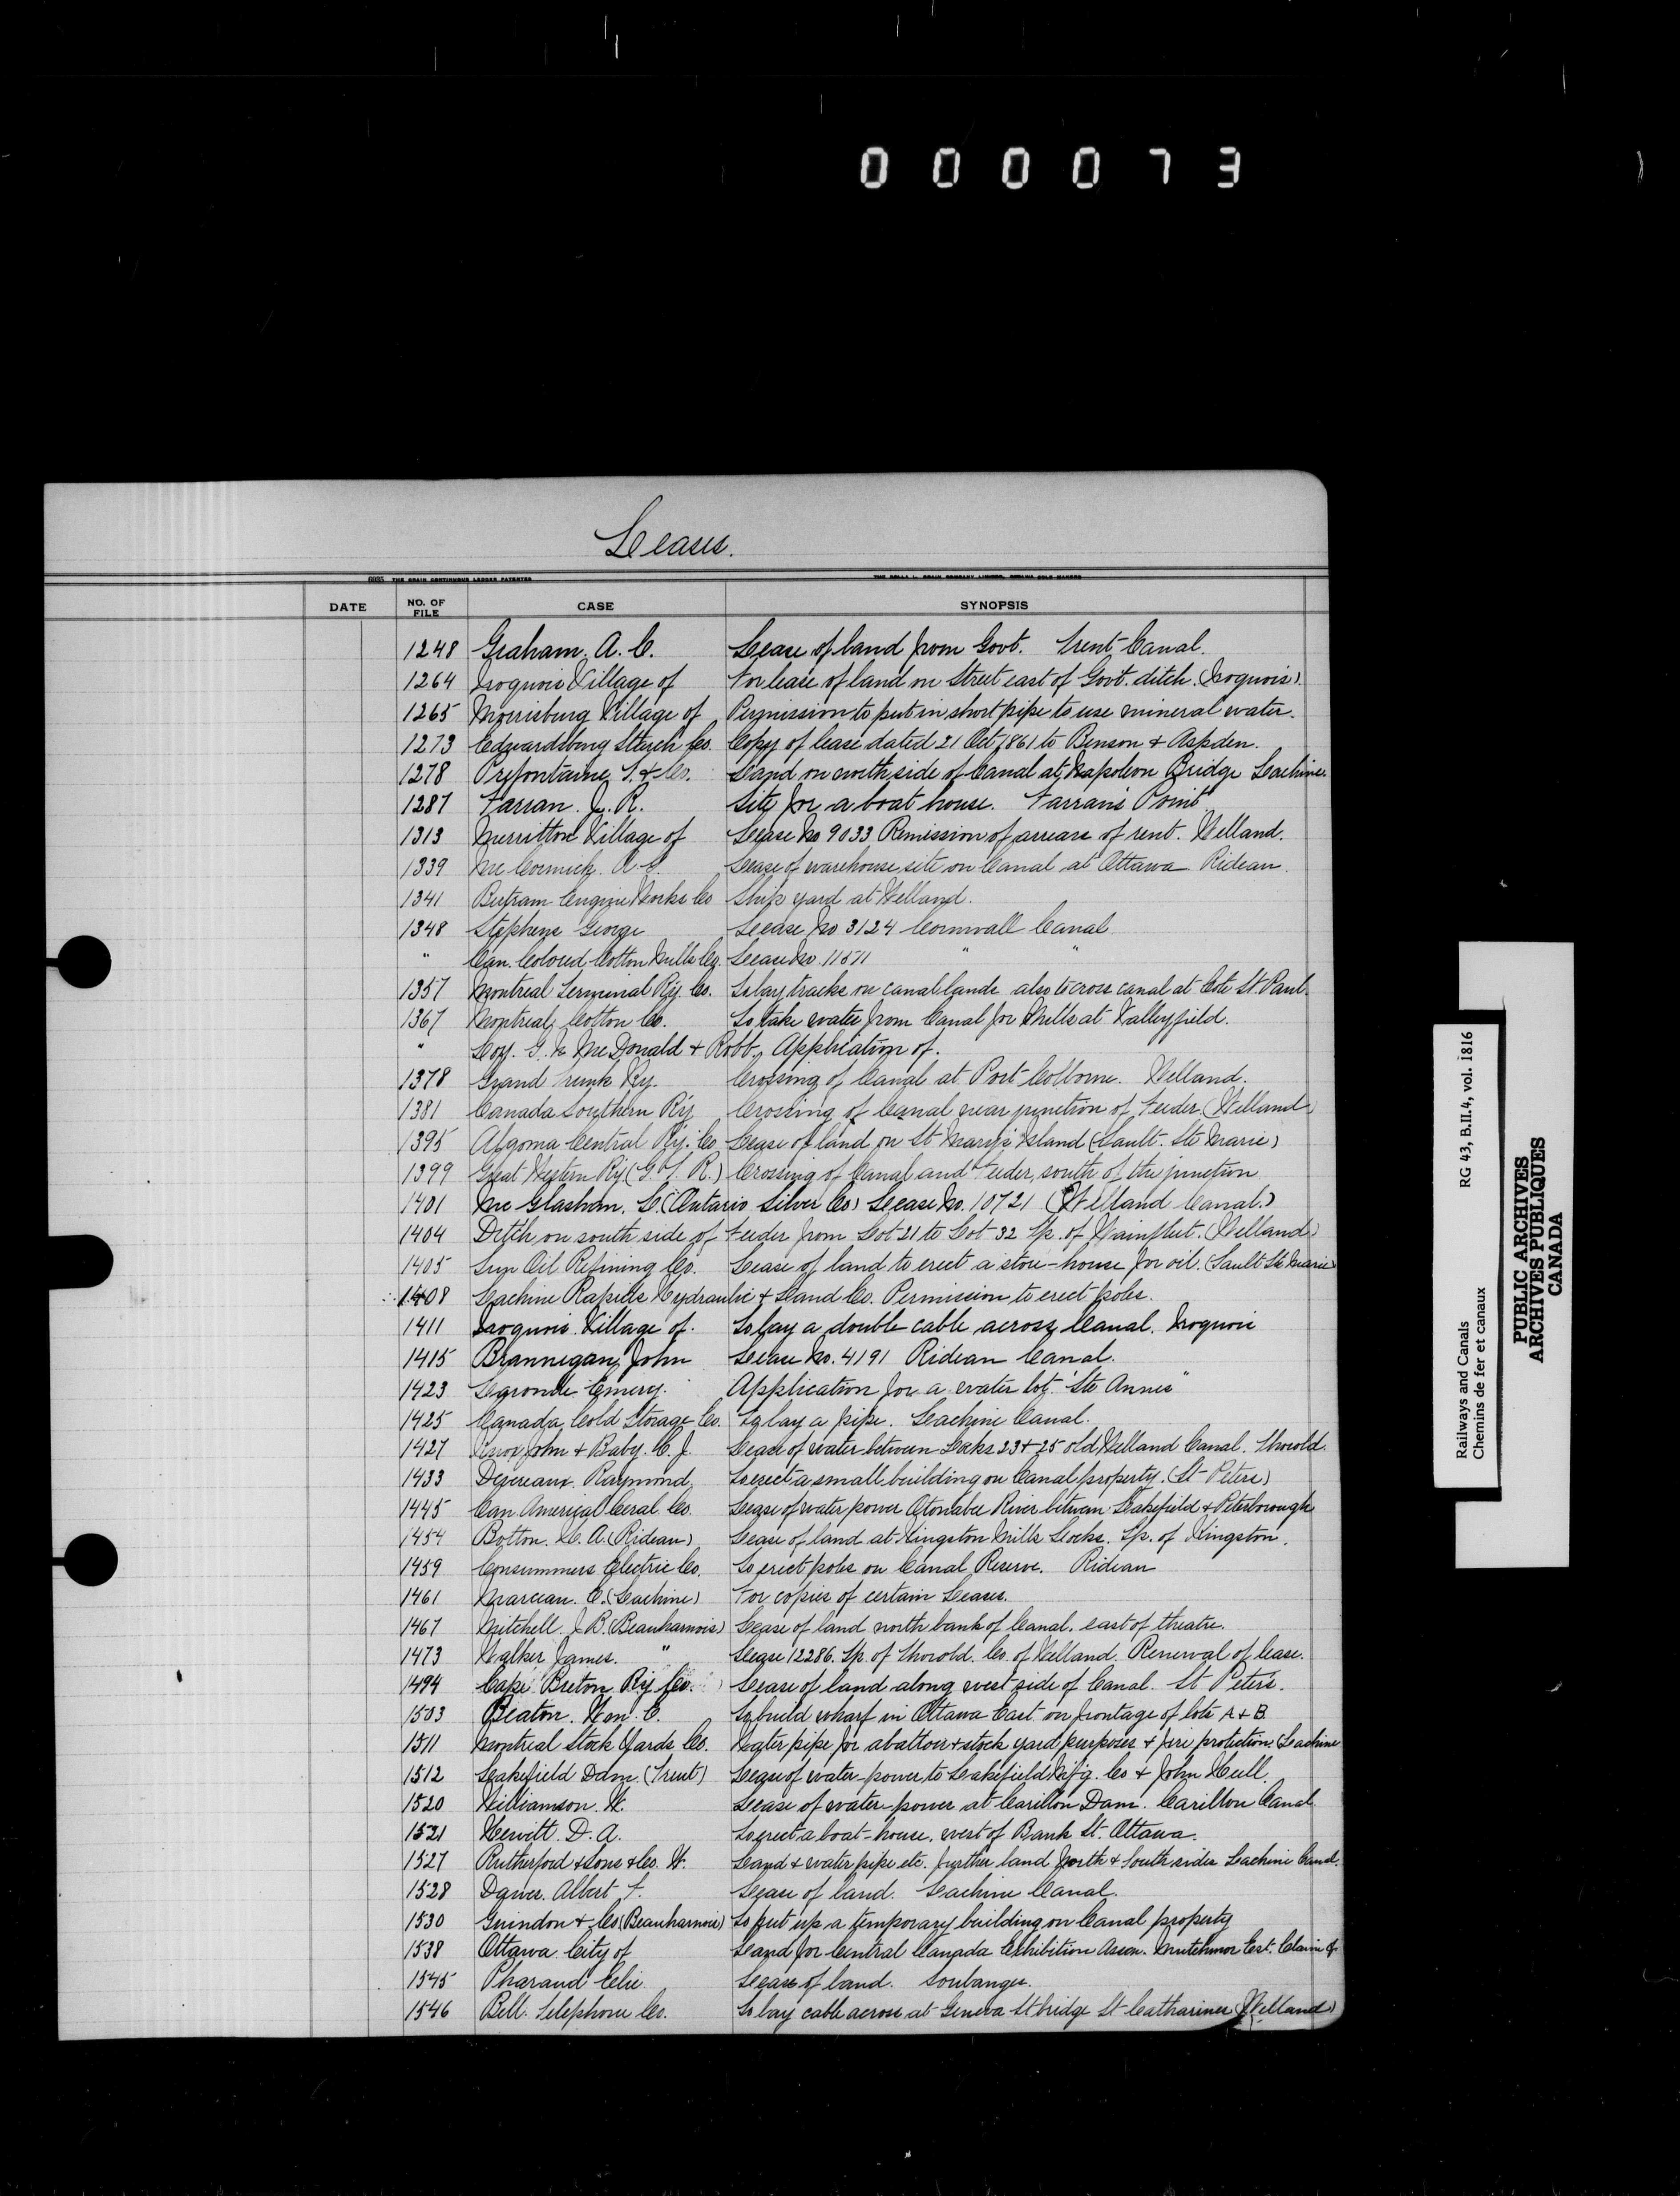 000073
Leases.
6935 THE BRAIN CONTINUOUS LEDGER PATENTED
DATE NO. OF FILE CASE SYNOPSIS
1248 Graham. A. C. Lease of land from Govt. Trent Canal.
1264 Iroquois Village of For lease of land on Street east of Govt. ditch. (Iroquois).
1265 Morrisburg Village of Permission to put in short pipe to use mineral water.
1273 Edwardsburg Starch Co. Copy of lease dated 21 Oct 1861 to Benson & Aspden.
1278 Prefontaine T. & Co. Land on north side of Canal at Napoleon Bridge Lachine.
1287 Farran. J. R. Site for a boat house. Farran's Point
1313 Merritton Village of Lease No 9033 Remission of arrears of rent. Welland.
1339 McCormick. Lease of warehouse site on Canal at Ottawa Rideau.
1341 Bertram Engine Works Co Ship yard at Welland.
1348 Stephens George Lease No 3124 Cornwall Canal
" Can. Colored Cotton Mills Co. Lease No. 11571 " "
1357 Montreal Terminal Ry. Co. To lay tracks on canal lands also to cross canal at Cote St. Paul.
1367 Montreal Cotton Co. To take water from Canal for Mills at Valleyfield.
" Loy. G. & McDonald & Robb. Application of.
1378 Grand Trunk Ry. Crossing of Canal at Port Colborne. Welland.
1381 Canada Southern Ry Crossing of Canal near junction of Feeder (Welland)
1395 Algoma Central Ry. Co Lease of land on St Mary's Island (Sault. Ste Marie)
1399 Great Western Ry. (G. T. R.) Crossing of Canal and Feeder, south of the junction
1401 McGlashan. L. (Ontario Silver Co) Lease No. 10721 (Welland Canal.)
1404 Ditch on south side of Feeder from Lot 21 to Lot 32 Tp. of Wainfleet. (Welland)
1405 Sun Oil Refining Co. Lease of land to erect a store-house for oil. (Sault Ste Marie)
1408 Lachine Rapids Hydraulic & Land Co. Permission to erect poles.
1411 Iroquois Village of. To lay a double cable across Canal. Iroquois
1415 Brannigan John Lease No. 4191 Rideau Canal.
1423 Legronde Emery. Application for a water lot. "Ste Annes"
1425 Canada Cold Storage Co. To lay a pipe. Lachine Canal.
1427 John & Baby. C. J. Lease of water between Locks 23 & 25 old Welland Canal. Thorold
1433 Devereaux. Raymond To erect a small building on Canal property. (St Peters)
1445 Can American Ceral Co. Lease of water power Otonabee River between Lakefield & Peterborough
1454 Botton. H. A. (Rideau) Lease of land at Kingston Mills Locks. Tp. of Kingston.
1459 Consummers Electric Co. To erect poles on Canal Reserve. Rideau
1461 Marceau. E. (Lachine) For copies of certain Leases.
1467 Mitchell. J. B. (Beauharnois) Lease of land north bank of Canal. east of theatre.
1473 Walker James. " Lease 12286. Tp. of Thorold. Co. of Welland. Renewal of lease.
1494 Cape Breton Ry Co. Lease of land along west side of Canal. St Peter's.
1503 Beaton. Wm. C. To build wharf in Ottawa East on frontage of lots A & B.
1511 Montreal Stock Yards Co. Water pipe for abattoir & stock yard purposes & fire protection (Lachine
1512 Lakefield Dam. (Trent) Lease of water-power to Lakefield M'f'g. Co & John Hull.
1520 Williamson. W. Lease of water-power at Carillon Dam. Carillon Canal
1521 Hewitt. D. A. To erect a boat-house. west of Bank St. Ottawa.
1527 Rutherford & Sons & Co. W. Land & water pipe etc. further land North & South sides Lachine Canal.
1528 Dawes. Albert F. Lease of land. Lachine Canal.
1530 Guindon & Co (Beauharnois) To put up a temporary building on Canal property
1538 Ottawa City of Land for Central Canada Exhibition Assen. Mutchmor Est. Claim of
1545 Pharand Elie Lease of land. Soulanges.
1546 Bell Telephone Co. To lay cable across at Geneva St bridge St Catharines (Welland)
Railways and Canals RG 43, B.II.4, vol. 1816
Chemins de fer et canaux
PUBLIC ARCHIVES
ARCHIVES PUBLIQUES
CANADA